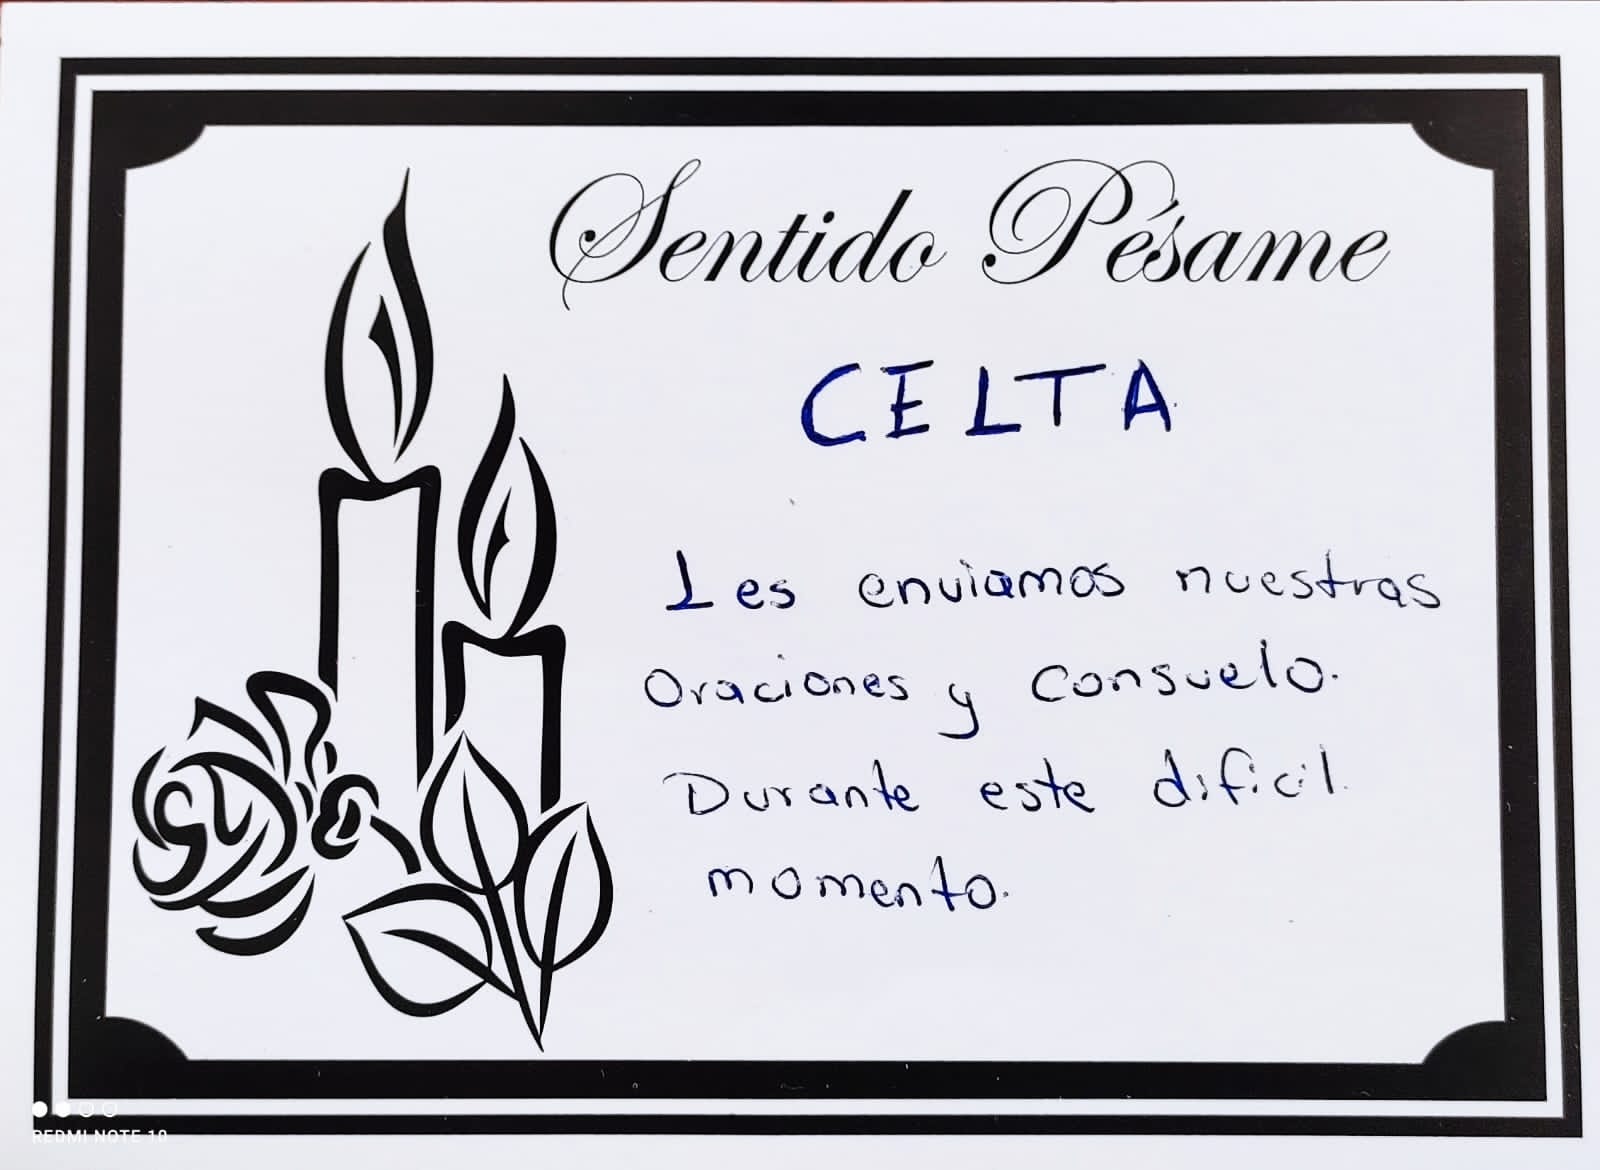 Sentido Pésame
CELTA
Les enviamos nuestras
Oraciones y Consuelo.
Durante este dificil.
momento.
REDMI NOTE 10